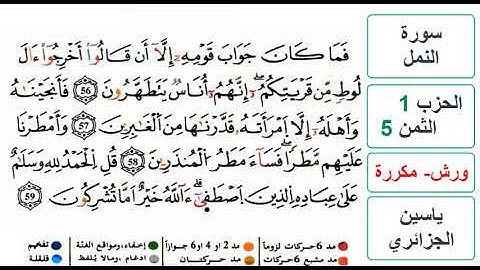 فَمَا كَانَ جَوَابَ قَوْمِهِۦٓ إِلَّآ أَن قَالُوٓا۟ أَخْرِجُوٓا۟ ءَالَ
لُوطٍ مِّن قَرْيَتِكُمُۥٓ إِنَّهُمُۥٓ أُنَاسٌ يَتَطَهَّرُونَ 56 فَأَنجَيْنَـٰهُ
وَأَهْلَهُۥٓ إِلَّا اَمْرَأَتَهُۥ قَدَّرْنَـٰهَا مِنَ ٱلْغَـٰبِرِينَ 57 وَأَمْطَرْنَا
عَلَيْهِم مَّطَرًا فَسَآءَ مَطَرُ ٱلْمُنذَرِينَ 58 قُلِ اِلْحَمْدُ لِلهِ وَسَلَـٰمٌ
عَلَىٰ عِبَادِهِ اِلذِينَ اَصْطَفَىٰٓ ءَآللَّهُ خَيْرٌ اَمَّا تُشْرِكُونَ 59
مد 6 حركات لزوماً
مد 2 او 4 او 6 جوازاً
إخفاء، ومواقع الغنة
تفخيم
مد مشبع 6 حركات
مد حركتان
ادغام، ومالا يُلفظ
قلقلة
سورة
النمل
الحزب 1
الثمن 5
ورش- مكررة
ياسين
الجزائري